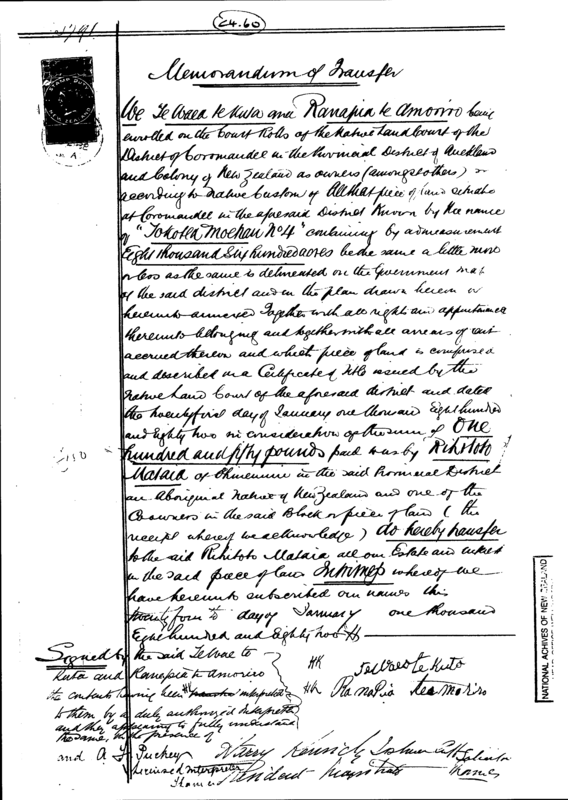 C4.60
Memorandum of Transfer
We Te Waea te Kuta and Ranapia te Amoriro being
enrolled on the Court Rolls of the Native Land Court of the
District of Coromandel in the Provincial District of Auckland
and Colony of New Zealand as owners (amongst others)
according to Native Custom of All that piece of land situate
at Coromandel in the aforesaid District Known by the name
of "Tokotea Moehau No 4" containing by admeasurement
Eight thousand Six hundred acres be the same a little more
or less as the same is delineated on the Government map
of the said district and in the plan drawn hereon or
hereunto annexed Together with all rights and appurtenances
thereunto belonging and together with all arrears of rent
accrued thereon and which piece of land is comprised
and described in a Certificate of title issued by the
Native Land Court of the aforesaid district and dated
the twenty first day of January one thousand Eight hundred
and Eighty two in consideration of the sum of One
£150
hundred and fifty pounds paid to us by Rihitoto
Mataia of Ohinemuri in the said Provincial District
an Aboriginal Native of New Zealand and one of the
Co-owners in the said Block or piece of land (the
receipt whereof we acknowledge) do hereby transfer
to the said Rihitoto Mataia all our Estate and interest
in the said piece of land In witness whereof we
have hereunto subscribed our names this
day of January one thousand
Eight hundred and Eighty two
Signed by the said Te Wae te
Kuta and Ranapia te Amoriro
the contents having been interpreted
to them by a duly authorized Interpreter
and they appearing to fully understand
the same, in the presence of
HK Te Waeo te Kuto
HK Ranapia teamoriro
and A J Puckey
Licensed Interpreter
Thames
Harry Kenrick
Resident Magistrate
Solicitor
Thames
NATIONAL ARCHIVES OF NEW ZEALAND